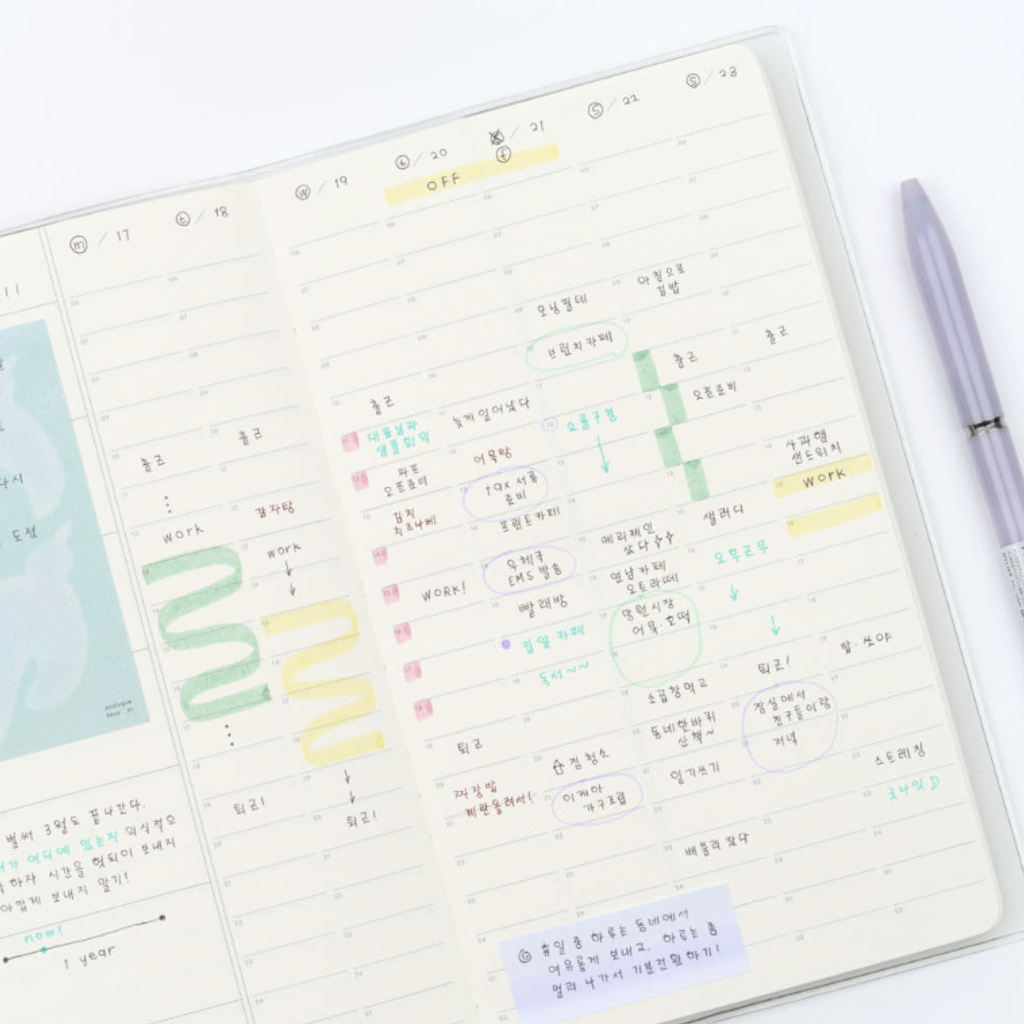 m / 17
t / 18
w / 19
t / 20
f / 21
S / 22
S / 23
OFF
!!
다시
도전
출근
WORK
퇴근!
출근
감자탕
work
퇴근!
출근
대표님과
샘플회의
오픈준비
김치
치즈나베
WORK!
퇴근
짜장밥
계란올려서!
늦게 일어났다
어묵탕
tax 서류
준비
프린트카페
우체국
EMS 발송
빨래방
집앞 카페
독서~~
집청소
이케아
가구조립
모닝필테
브런치카페
쇼룸구경
메리제인
샀다
연남카페
오트라떼
망원시장
어묵·호떡
소곱창먹고
동네한바퀴
산책~
일기쓰기
배불러 잤다
아침으로
김밥
출근
오픈준비
샐러디
오후근무
퇴근!
잠실에서
친구들이랑
저녁
출근
사과햄
샌드위치
WORK
스트레칭
굿나잇
벌써 3월도 끝나간다.
내가 어디에 있는지 의식적으
하자 시간을 헛되이 보내지
아깝게 보내지 말기!
now!
1 year
휴일 중 하루는 동네에서
여유롭게 보내고, 하루는 좀
멀리 나가서 기분전환하기!